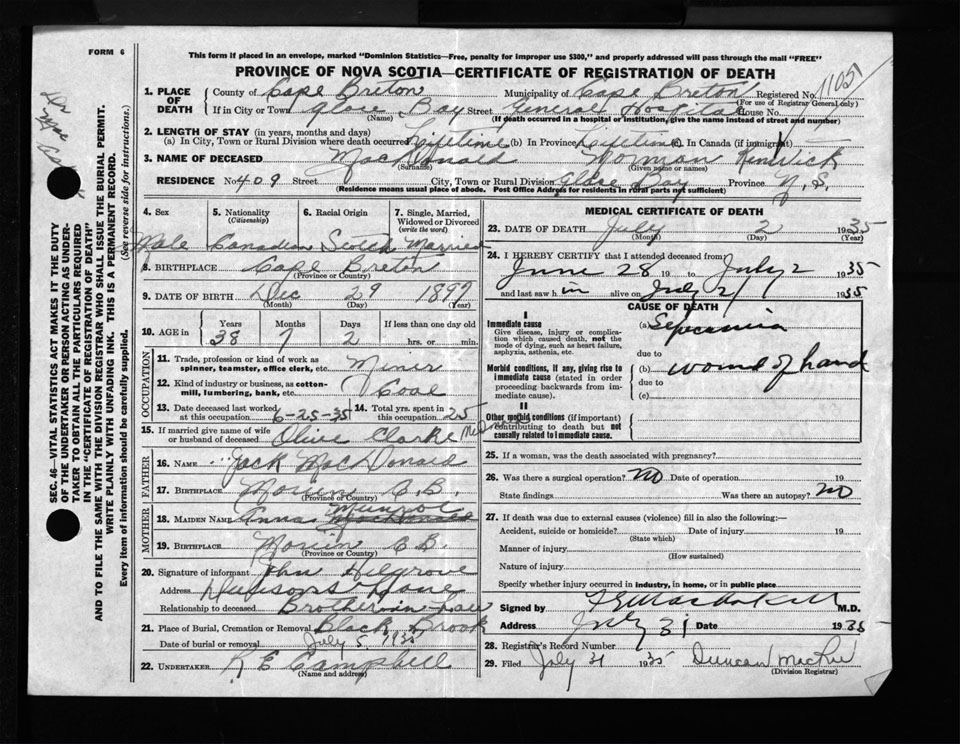 FORM 6
This form if placed in an envelope, marked "Dominion Statistics—Free, penalty for improper use $300," and properly addressed will pass through the mail "FREE"
PROVINCE OF NOVA SCOTIA—CERTIFICATE OF REGISTRATION OF DEATH
1. PLACE OF DEATH
County of Cape Breton Municipality of Cape Breton Registered No.
(For use of Registrar General only)
If in City or Town Glace Bay Street General Hospital House No.
(Name) (If death occurred in a hospital or institution, give the name instead of street and number)
2. LENGTH OF STAY (in years, months and days)
(a) In City, Town or Rural Division where death occurred Lifetime (b) In Province Lifetime (c). In Canada (if immigrant)
3. NAME OF DECEASED MacDonald Norman Kenrick
(Surname) (Given name or names)
RESIDENCE No. 409 Street City, Town or Rural Division Glace Bay Province N.S.
(Residence means usual place of abode. Post Office Address for residents in rural parts not sufficient)
4. Sex 5. Nationality 6. Racial Origin 7. Single, Married, Widowed or Divorced
(Citizenship) (write the word)
Male Canadian Scotch Married
8. BIRTHPLACE Cape Breton
(Province or Country)
9. DATE OF BIRTH Dec 29 1897
(Month) (Day) (Year)
10. AGE in Years Months Days If less than one day old
38 7 2 hrs. or min.
OCCUPATION
11. Trade, profession or kind of work as spinner, teamster, office clerk, etc. Miner
12. Kind of industry or business, as cotton-mill, lumbering, bank, etc. Coal
13. Date deceased last worked at this occupation 6-25-35 14. Total yrs. spent in this occupation 25
15. If married give name of wife or husband of deceased Olive Clarke
FATHER
16. NAME Jack MacDonald
17. BIRTHPLACE Morien C.B.
(Province or Country)
MOTHER
18. MAIDEN NAME Annas Munroe
19. BIRTHPLACE Morien C.B.
(Province or Country)
20. Signature of informant John Hilgrove
Address
Relationship to deceased Brother in Law
21. Place of Burial, Cremation or Removal Black Brook
Date of burial or removal July 5, 1935
22. UNDERTAKER R E Campbell
(Name and address)
MEDICAL CERTIFICATE OF DEATH
23. DATE OF DEATH July 2 1935
(Month) (Day) (Year)
24. I HEREBY CERTIFY that I attended deceased from
June 28 19 to July 2 1935
and last saw him alive on July 2/ 1935
CAUSE OF DEATH
I
Immediate cause
Give disease, injury or complication which caused death, not the mode of dying, such as heart failure, asphyxia, asthenia, etc.
(a) Sepecamia
due to
Morbid conditions, if any, giving rise to immediate cause (stated in order proceeding backwards from immediate cause).
(b) wound of hand
due to
(c)
II
Other morbid conditions (if important) contributing to death but not causally related to immediate cause.
25. If a woman, was the death associated with pregnancy?
26. Was there a surgical operation? NO Date of operation 19
State findings Was there an autopsy? NO
27. If death was due to external causes (violence) fill in also the following:—
Accident, suicide or homicide? Date of injury 19
(State which)
Manner of injury
(How sustained)
Nature of injury
Specify whether injury occurred in industry, in home, or in public place
Signed by M.D.
Address July 31 Date 1935
28. Registrar's Record Number
29. Filed July 31 1935 Duncan MacRae
(Division Registrar)
SEC. 46—VITAL STATISTICS ACT MAKES IT THE DUTY
OF THE UNDERTAKER OR PERSON ACTING AS UNDER-
TAKER TO OBTAIN ALL THE PARTICULARS REQUIRED
IN THE "CERTIFICATE OF REGISTRATION OF DEATH"
AND TO FILE THE SAME WITH THE DIVISION REGISTRAR WHO SHALL ISSUE THE BURIAL PERMIT.
WRITE PLAINLY WITH UNFADING INK. THIS IS A PERMANENT RECORD.
Every item of information should be carefully supplied. (See reverse side for instructions.)